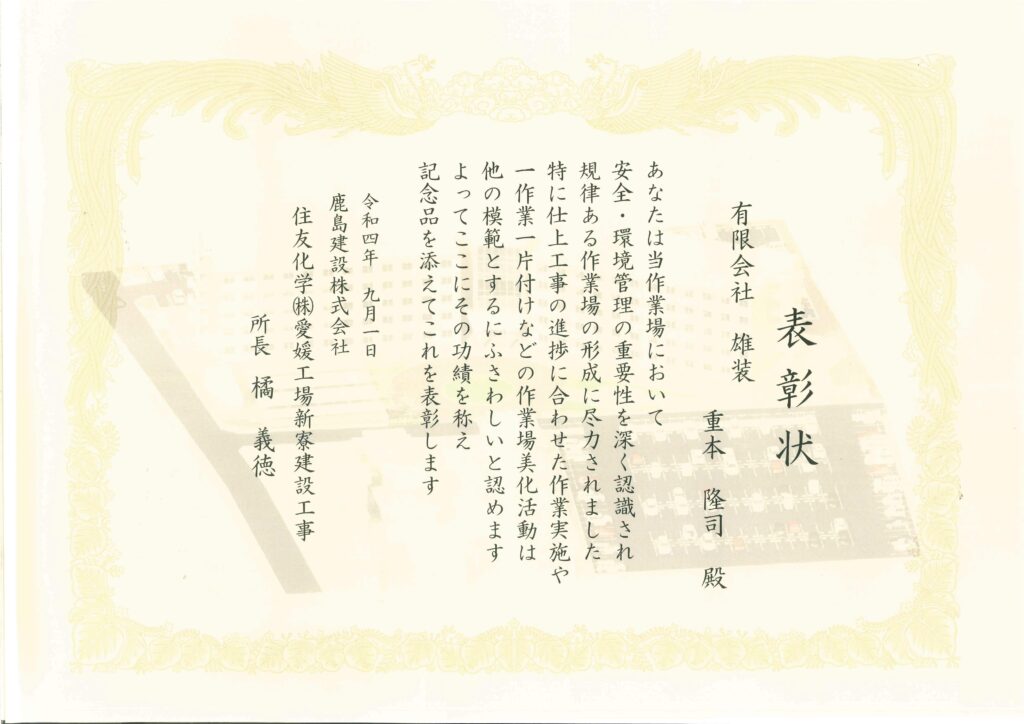 表彰状
有限会社 雄装
重本 隆司 殿
あなたは当作業場において
安全・環境管理の重要性を深く認識され
規律ある作業場の形成に尽力されました
特に仕上工事の進捗に合わせた作業実施や
一作業一片付けなどの作業場美化活動は
他の模範とするにふさわしいと認めます
よってここにその功績を称え
記念品を添えてこれを表彰します
令和四年 九月一日
鹿島建設株式会社
住友化学㈱愛媛工場新寮建設工事
所長 橘 義徳